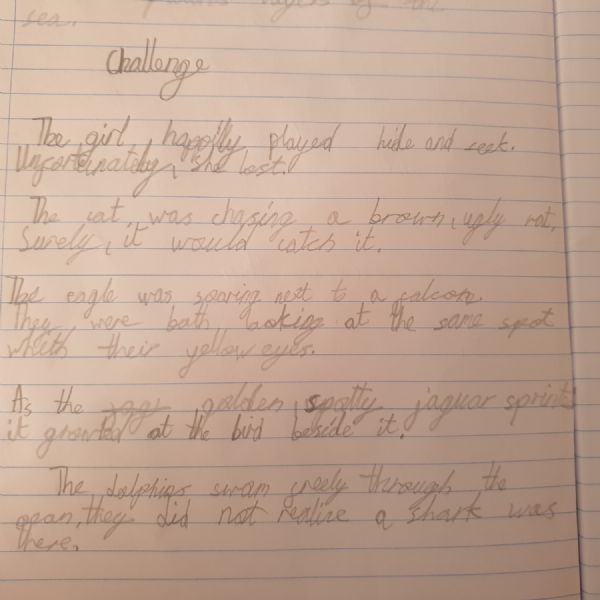 sea.
Challenge
The girl, happilly played hide and seek.
Unfortunately, she lost.
The cat, was chasing a brown, ugly rat,
Surely, it would catch it.
The eagle was soaring next to a falcon.
They were both looking at the same spot
whith their yellow eyes.
As the golden, spotty jaguar sprints
it growled at the bird beside it.
The dolphins swam freely through the
they did not realize a shark was
there.